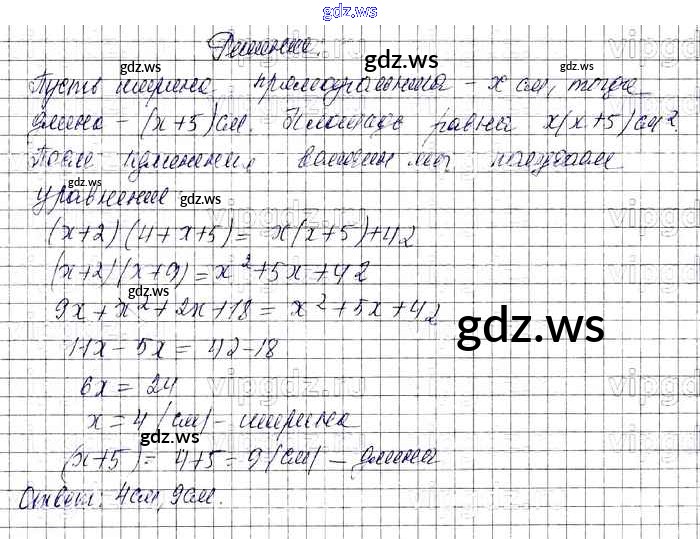 gdz.ws
Решение.
gdz.ws
Пусть ширина прямоугольника - x см, тогда
gdz.ws
длина - (x+5) см. Площадь равна x(x+5) см².
После изменения величин мы получаем
gdz.ws
уравнение
gdz.ws
(x+2)(4+x+5) = x(x+5)+42
(x+2)(x+9) = x²+5x+42
gdz.ws
9x+x²+2x+18 = x²+5x+42
gdz.ws
11x-5x = 42-18
6x = 24
x = 4 (см) - ширина
gdz.ws
(x+5) = 4+5 = 9 (см) - длина
Ответ: 4см, 9см.
gdz.ws